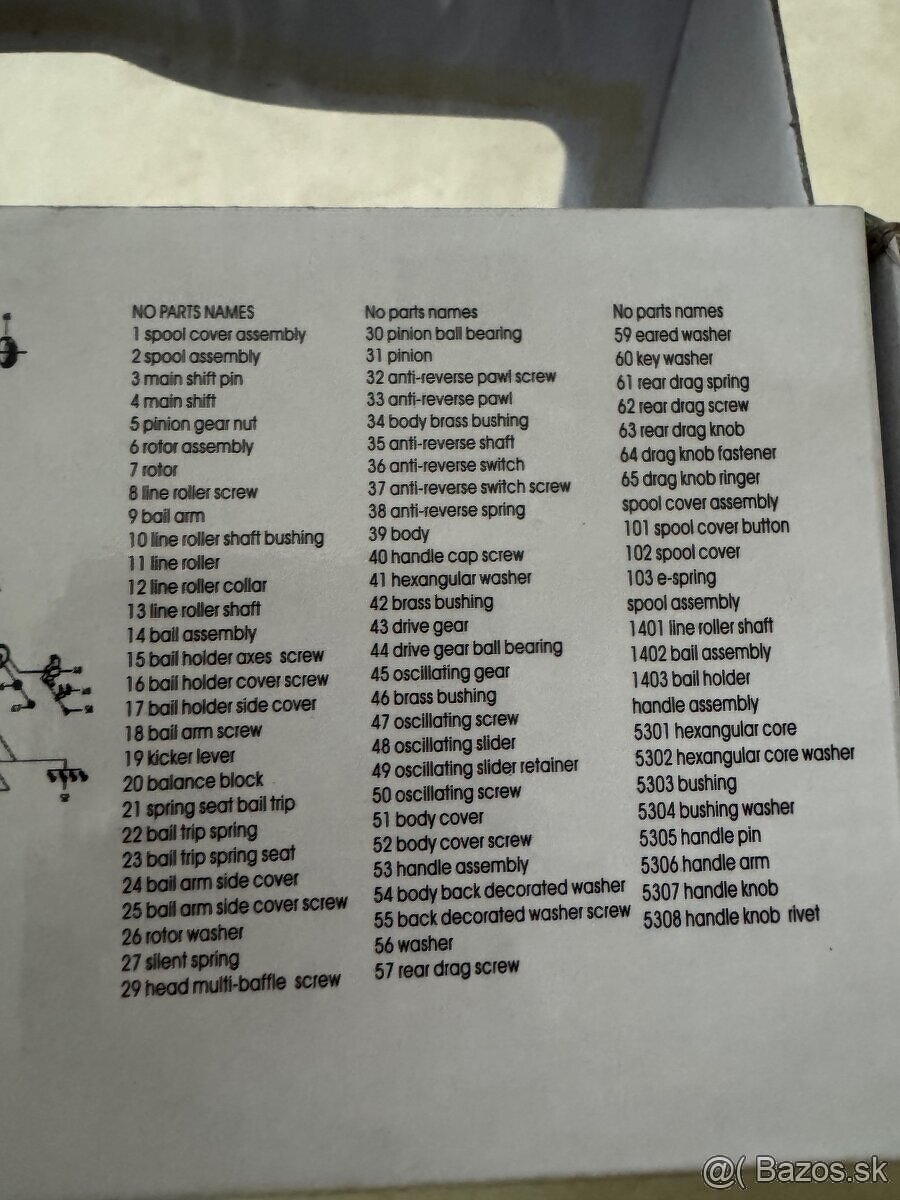 NO PARTS NAMES
1 spool cover assembly
2 spool assembly
3 main shift pin
4 main shift
5 pinion gear nut
6 rotor assembly
7 rotor
8 line roller screw
9 bail arm
10 line roller shaft bushing
11 line roller
12 line roller collar
13 line roller shaft
14 bail assembly
15 bail holder axes screw
16 bail holder cover screw
17 bail holder side cover
18 bail arm screw
19 kicker lever
20 balance block
21 spring seat bail trip
22 bail trip spring
23 bail trip spring seat
24 bail arm side cover
25 bail arm side cover screw
26 rotor washer
27 silent spring
29 head multi-baffle screw
No parts names
30 pinion ball bearing
31 pinion
32 anti-reverse pawl screw
33 anti-reverse pawl
34 body brass bushing
35 anti-reverse shaft
36 anti-reverse switch
37 anti-reverse switch screw
38 anti-reverse spring
39 body
40 handle cap screw
41 hexangular washer
42 brass bushing
43 drive gear
44 drive gear ball bearing
45 oscillating gear
46 brass bushing
47 oscillating screw
48 oscillating slider
49 oscillating slider retainer
50 oscillating screw
51 body cover
52 body cover screw
53 handle assembly
54 body back decorated washer
55 back decorated washer screw
56 washer
57 rear drag screw
No parts names
59 eared washer
60 key washer
61 rear drag spring
62 rear drag screw
63 rear drag knob
64 drag knob fastener
65 drag knob ringer
spool cover assembly
101 spool cover button
102 spool cover
103 e-spring
spool assembly
1401 line roller shaft
1402 bail assembly
1403 bail holder
handle assembly
5301 hexangular core
5302 hexangular core washer
5303 bushing
5304 bushing washer
5305 handle pin
5306 handle arm
5307 handle knob
5308 handle knob rivet
@( Bazos.sk